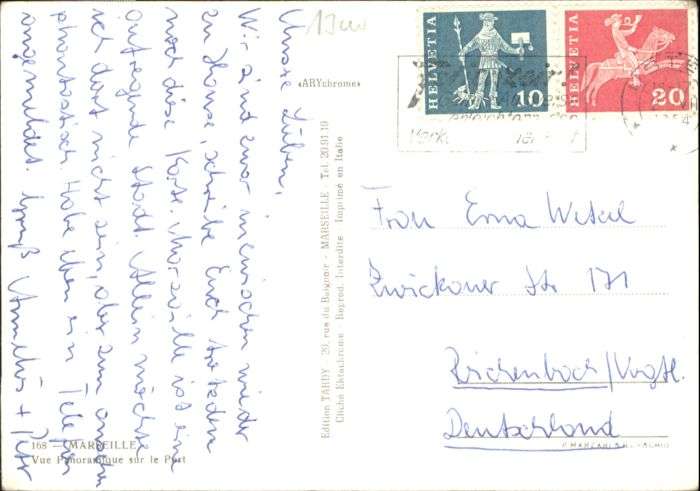 Unsre Lieben,
Wir sind zwar inzwischen wieder
zu Hause, schreibe Euch trotzdem
noch diese Karte. Marseille ist eine
aufregende Stadt. Allein möchte
ich dort nicht sein, aber zum
phantastisch. Habe eben ein Telefon
angemeldet. Gruß + Peter
«ARYchrome»
Edition TARDY - 20, rue du Baignoir - MARSEILLE - Tel. 20.91 19
Cliché Ektachrome - Reprod. Interdite Imprimé en Italie
168 — MARSEILLE
Vue Panoramique sur le Port
HELVETIA
10
HELVETIA
20
Frau Erna
Zwickauer Str 171
Reichenbach/Vogtl.
Deutschland